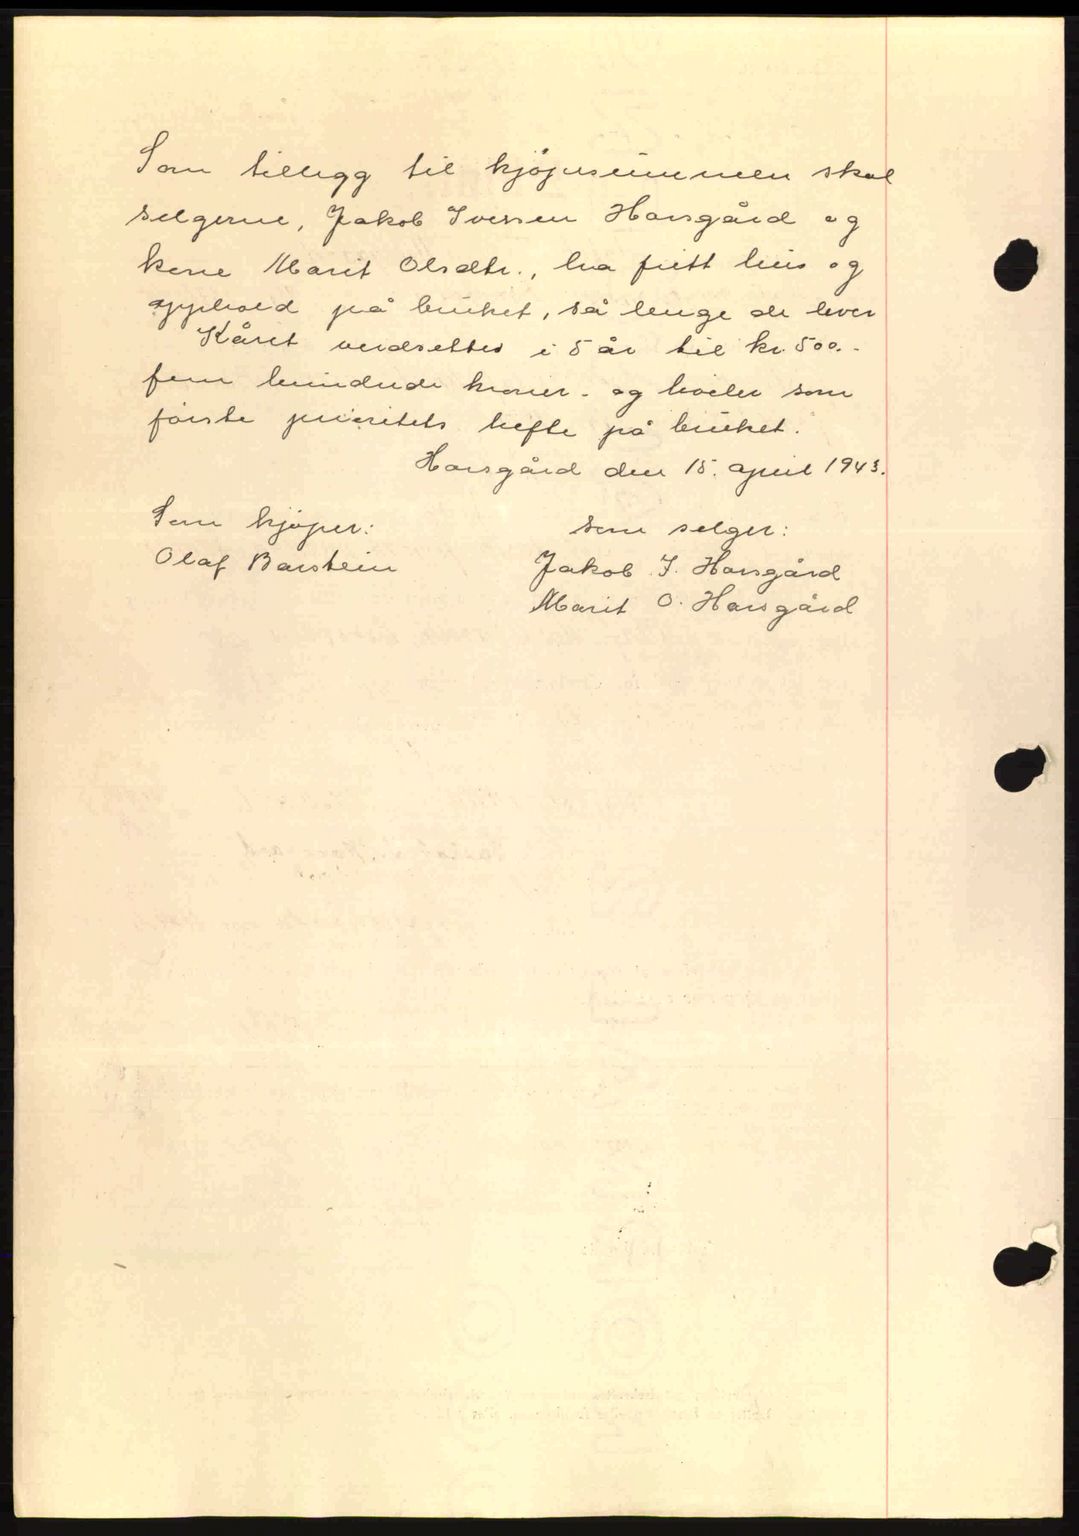 Som tillegg til kjøpesummen skal
selgerne, Jakob Iversen Horsgård og
kone Marit Olsdtr., ha fritt hus og
opphold på bruket, så lenge de lever
Kåret verdsettes i 5 år til kr. 500.-
fem hundrede kroner - og hviler som
første prioritets hefte på bruket.
Horsgård den 15. april 1943.
Som kjøper:
Olaf Barstein
som selger:
Jakob I. Horsgård
Marit O. Horsgård